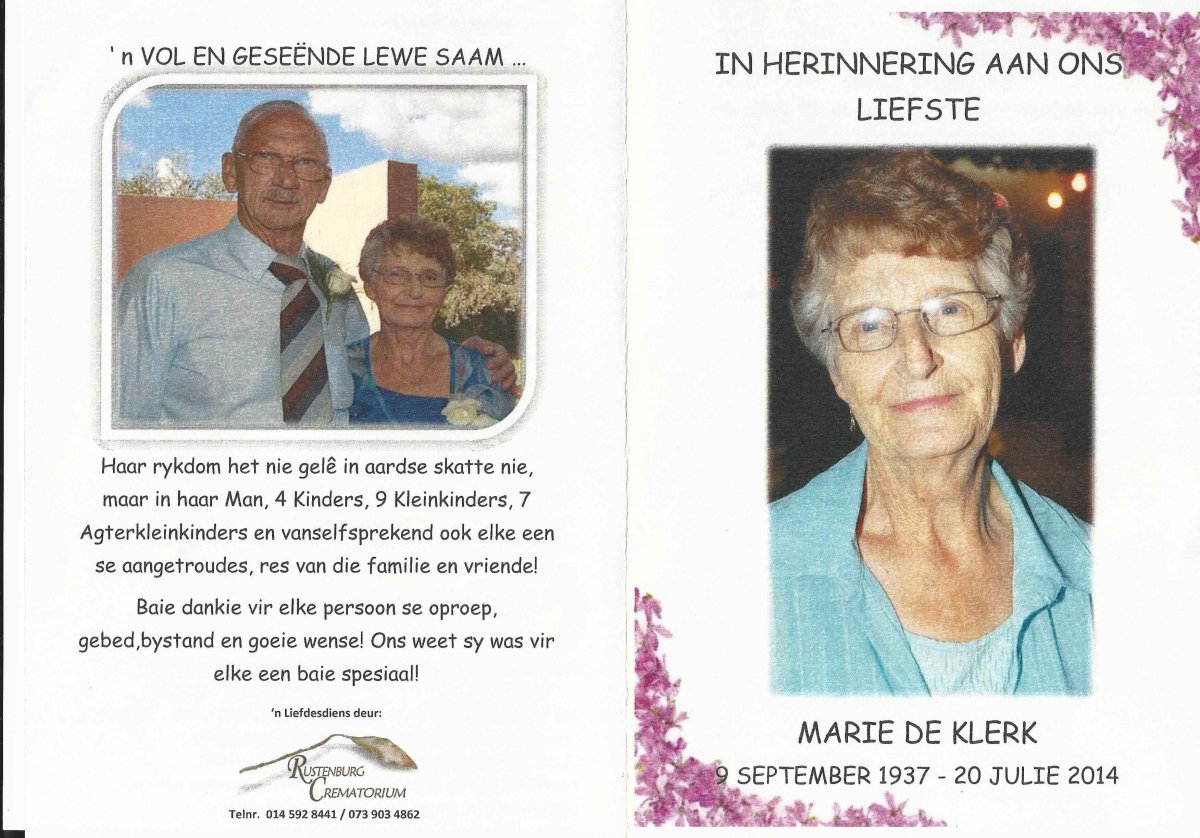 'n VOL EN GESEËNDE LEWE SAAM ...
Haar rykdom het nie gelê in aardse skatte nie,
maar in haar Man, 4 Kinders, 9 Kleinkinders, 7
Agterkleinkinders en vanselfsprekend ook elke een
se aangetroudes, res van die familie en vriende!
Baie dankie vir elke persoon se oproep,
gebed,bystand en goeie wense! Ons weet sy was vir
elke een baie spesiaal!
'n Liefdesdiens deur:
RUSTENBURG
CREMATORIUM
Telnr. 014 592 8441 / 073 903 4862
IN HERINNERING AAN ONS
LIEFSTE
MARIE DE KLERK
9 SEPTEMBER 1937 - 20 JULIE 2014